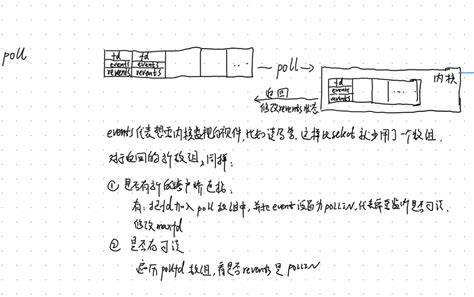 poll
fd fd
events events
revents revents
...
poll
内核
fd
event
revents
...
返回
修改revents状态
events代表想要内核监视的事件,比如读写等,这样比select就少用了一个数组.
对于返回的新数组,同样:
① 是否有新的客户端连接:
有:把fd加入poll数组中,并把event设为pollin,代表要监听是否可读.
修改maxfd
② 是否有可读
遍历pollfd数组,看是否revents是pollin